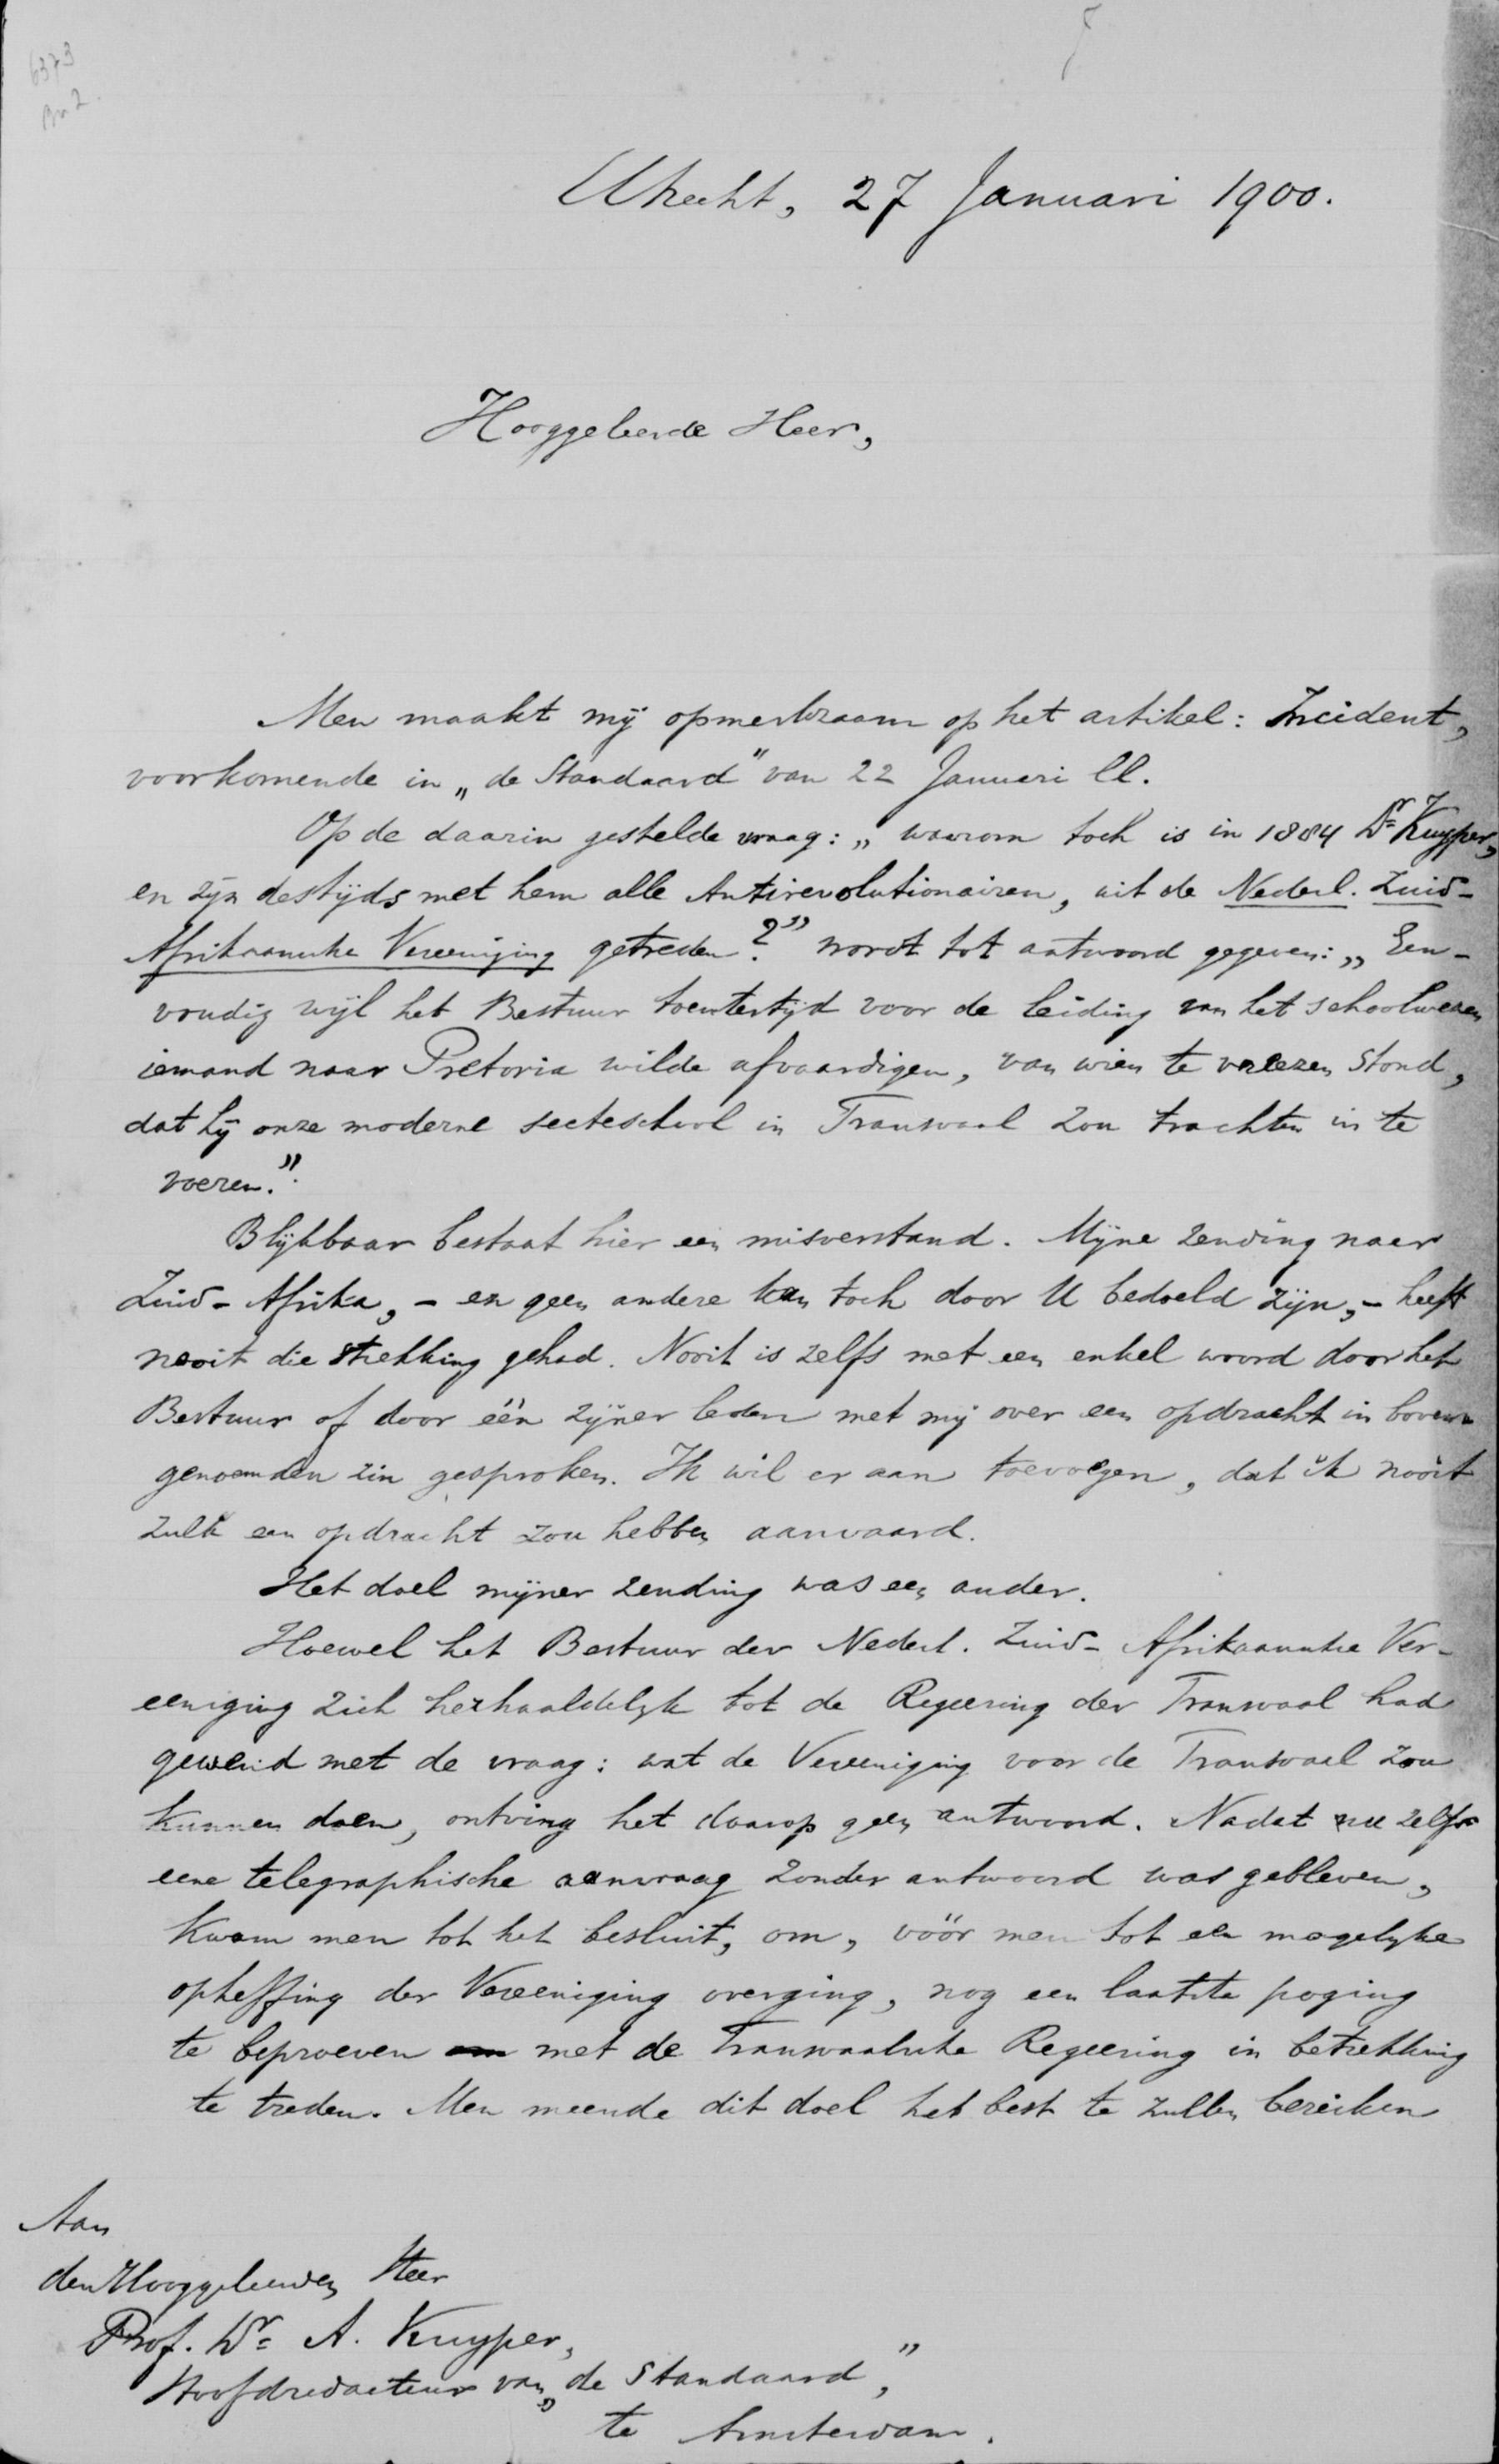 6373
Utrecht, 27 Januari 1900.
Hooggeleerde Heer,
Men maakt mij opmerkzaam op het artikel: Incident,
voorkomende in „de Standaard" van 22 Januari ll.
Op de daarin gestelde vraag: „waarom toch is in 1884 Dr Kuyper,
en zijn destijds met hem alle Antirevolutionairen, uit de Nederl. Zuid-
Afrikaansche Vereeniging getreden?" wordt tot antwoord gegeven: „Een-
voudig wijl het Bestuur toentertijd voor de leiding van het schoolwezen
iemand naar Pretoria wilde afvaardigen, van wien te vreezen stond,
dat hij onze moderne secteschool in Transvaal zou trachten in te
voeren."
Blijkbaar bestaat hier een misverstand. Mijne zending naar
Zuid-Afrika, - en geen andere kan toch door U bedoeld zijn, - heeft
nooit die strekking gehad. Nooit is zelfs met een enkel woord door het
Bestuur of door één zijner leden met mij over een opdracht in boven-
genoemden zin gesproken. Ik wil er aan toevoegen, dat ik nooit
zulk een opdracht zou hebben aanvaard.
Het doel mijner zending was een ander.
Hoewel het Bestuur der Nederl. Zuid-Afrikaansche Ver-
eeniging zich herhaaldelijk tot de Regeering der Transvaal had
gewend met de vraag: wat de Vereeniging voor de Transvaal zou
kunnen doen, ontving het daarop geen antwoord. Nadat nu zelfs
eene telegraphische aanvraag zonder antwoord was gebleven,
kwam men tot het besluit, om, vóór men tot een mogelijke
opheffing der Vereeniging overging, nog een laatste poging
te beproeven om met de Transvaalsche Regeering in betrekking
te treden. Men meende dit doel het best te zullen bereiken
Aan
den Hooggeleerden Heer
Prof. Dr A. Kuyper,
Hoofdredacteur van „de Standaard",
te Amsterdam.